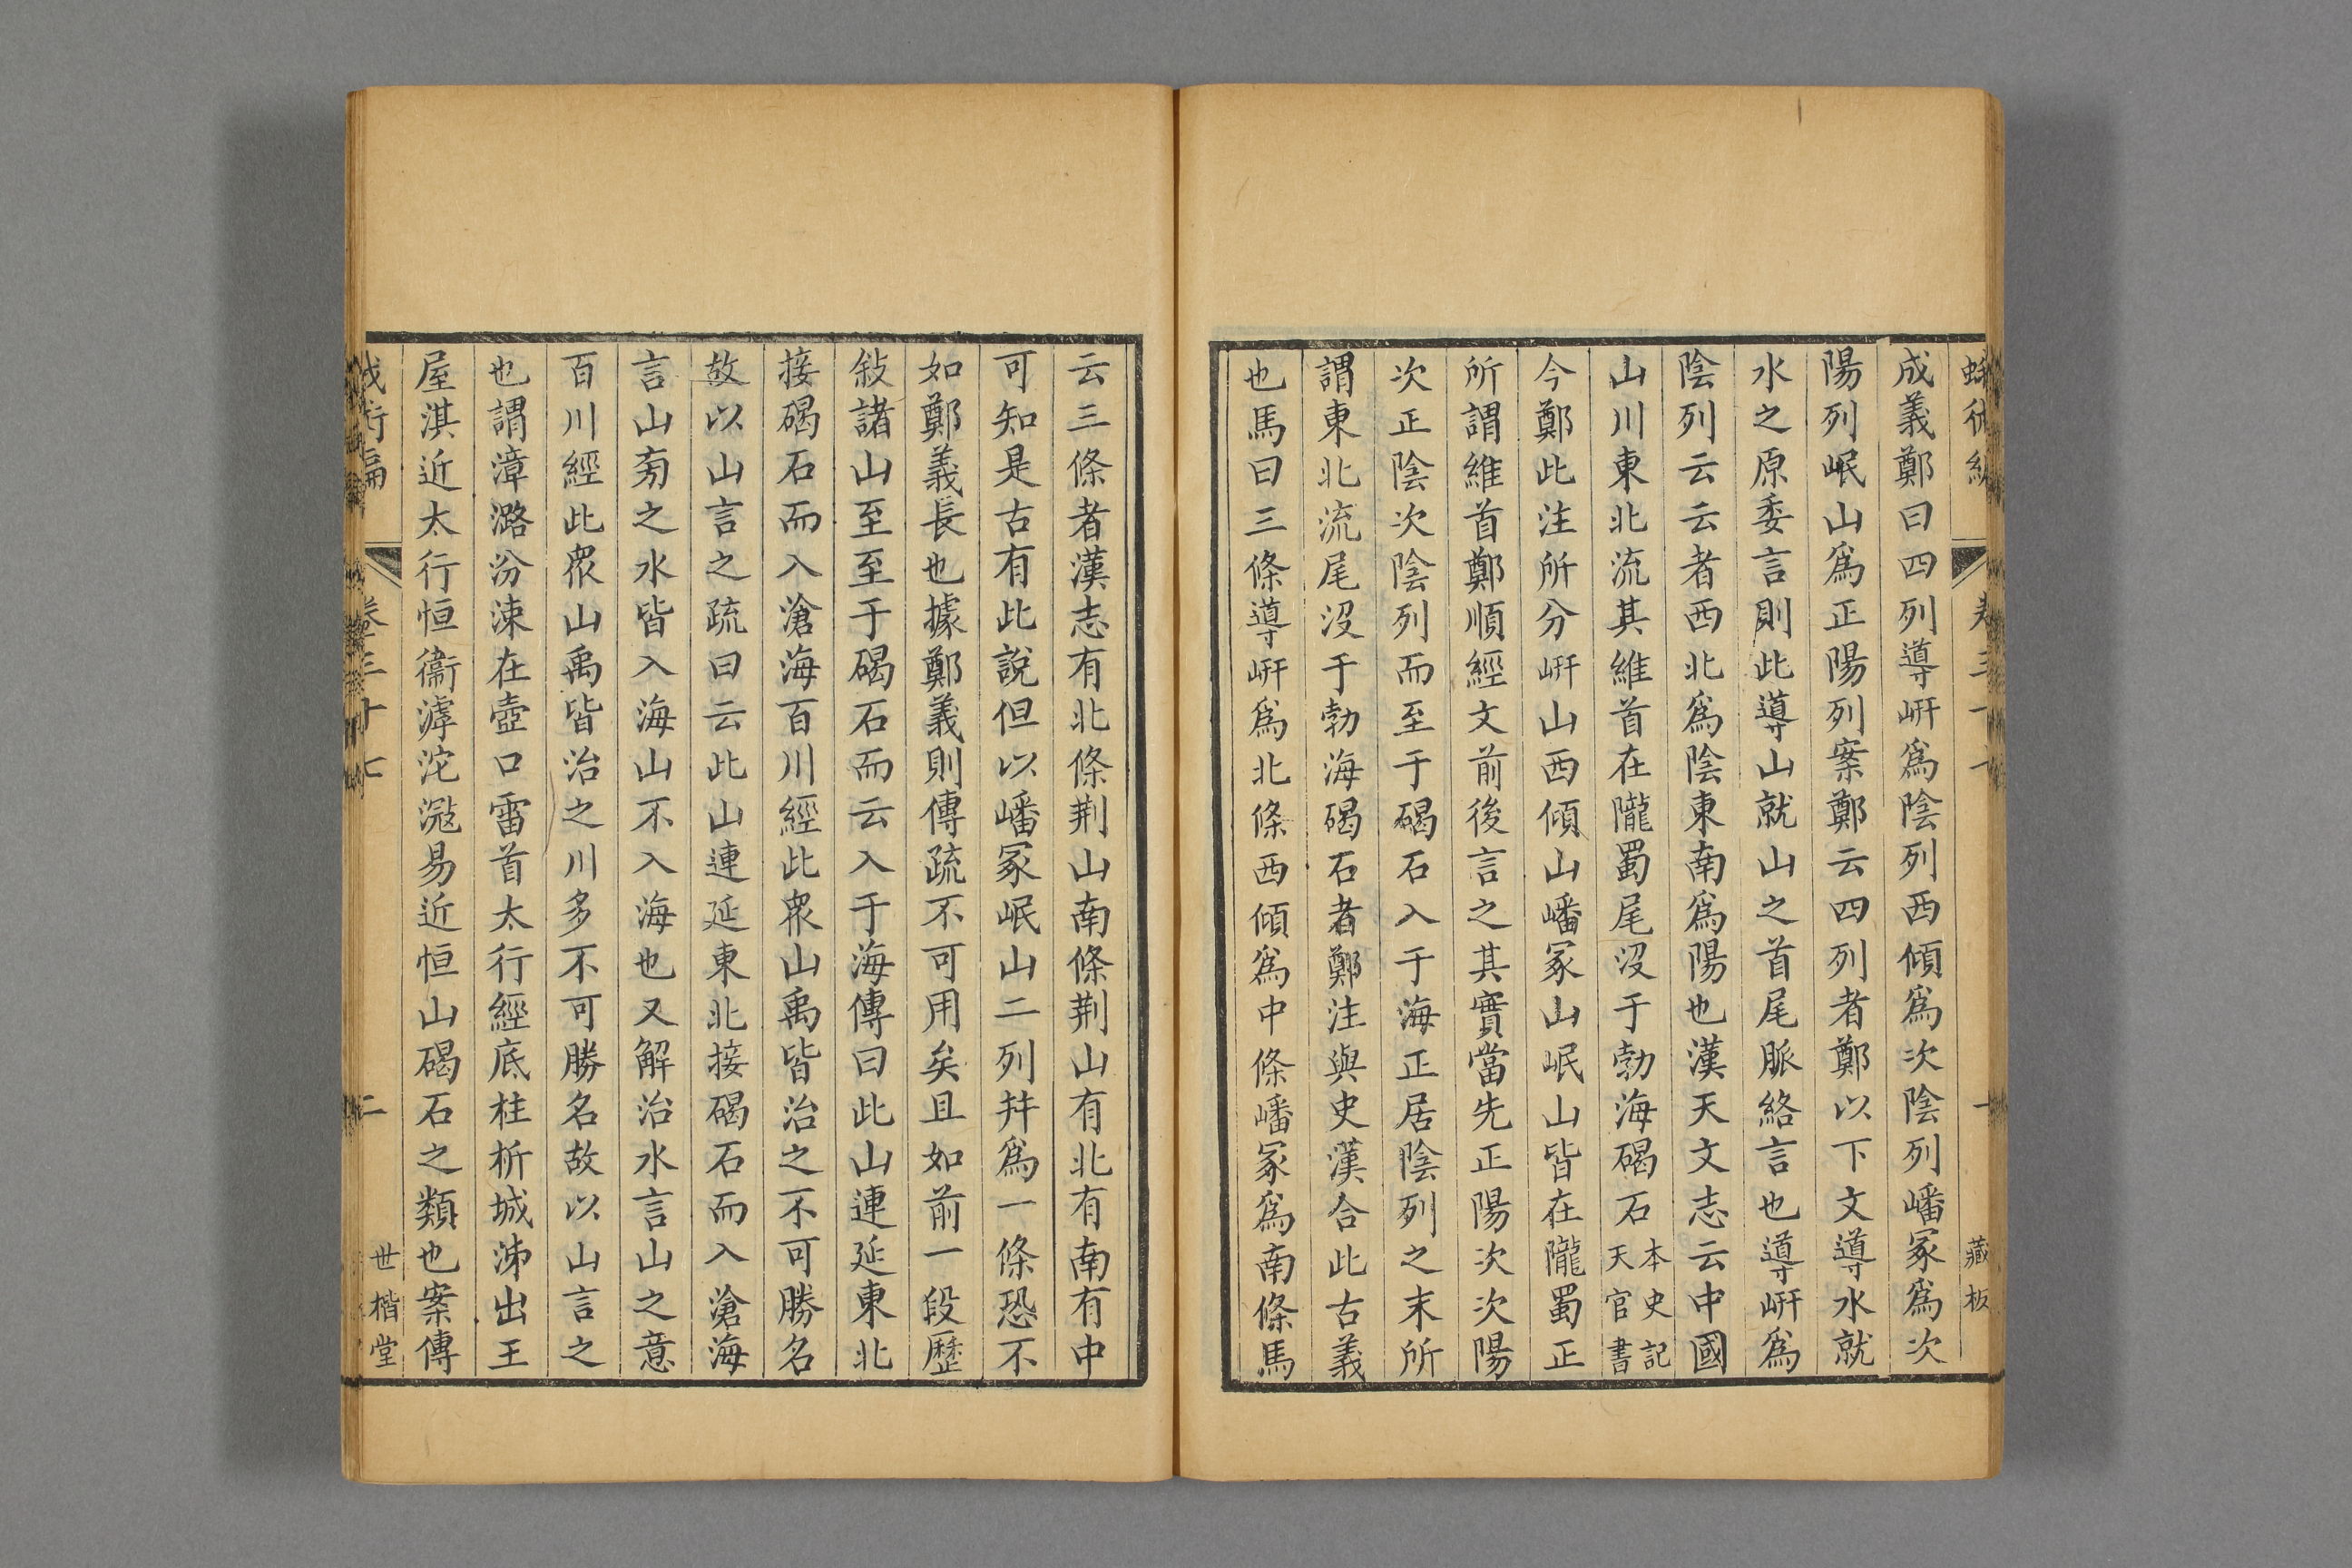 成義鄭曰四列導岍爲陰列西傾爲次陰列嶓冢爲次
陽列岷山爲正陽列案鄭云四列者鄭以下文導水就
水之原委言則此導山就山之首尾脈絡言也導岍爲
陰列云云者西北爲陰東南爲陽也漢天文志云中國
山川東北流其維首在隴蜀尾沒于勃海碣石本史記天官書
今鄭此注所分岍山西傾山嶓冢山岷山皆在隴蜀正
所謂維首鄭順經文前後言之其實當先正陽次次陽
次正陰次陰列而至于碣石入于海正居陰列之末所
謂東北流尾沒于勃海碣石者鄭注與史漢合此古義
也馬曰三條導岍爲北條西傾爲中條嶓冢爲南條馬
藏板
云三條者漢志有北條荆山南條荆山有北有南有中
可知是古有此說但以嶓冢岷山二列并爲一條恐不
如鄭義長也據鄭義則傳疏不可用矣且如前一段歷
敍諸山至至于碣石而云入于海傳曰此山連延東北
接碣石而入滄海百川經此衆山禹皆治之不可勝名
故以山言之疏曰云此山連延東北接碣石而入滄海
言山旁之水皆入海山不入海也又解治水言山之意
百川經此衆山禹皆治之川多不可勝名故以山言之
也謂漳潞汾涑在壺口雷首太行經底柱析城泲出王
屋淇近太行恒衞滹沱滱易近恒山碣石之類也案傳
卷三十七
二
世楷堂